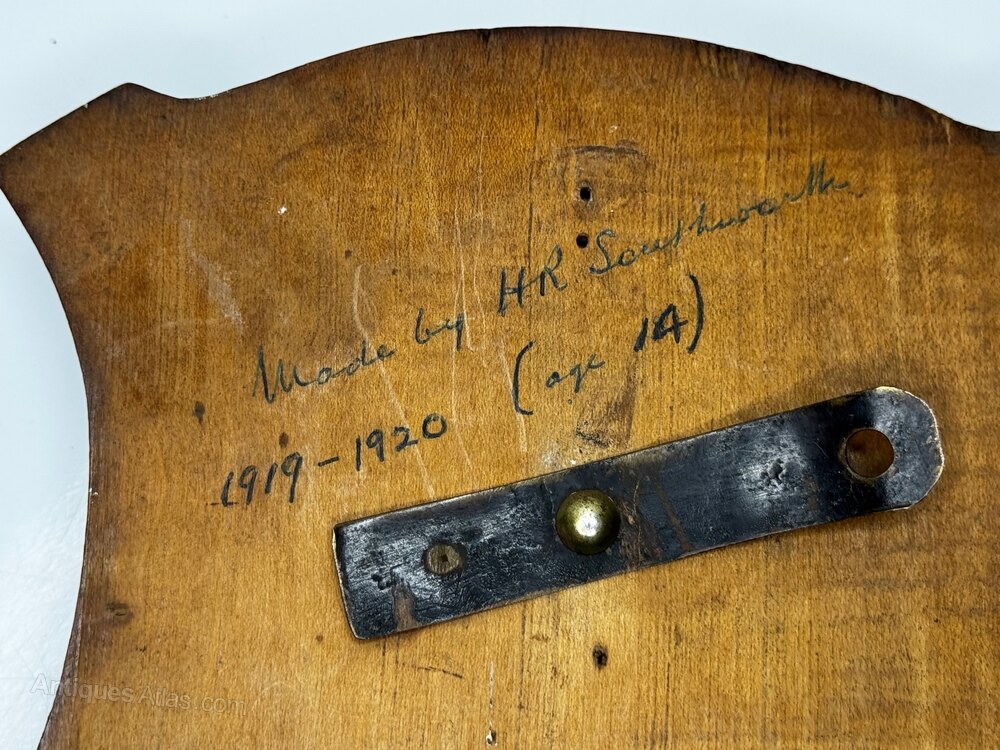 Made by HR. Southworth.
(age 14)
1919-1920
Antiques Atlas.com